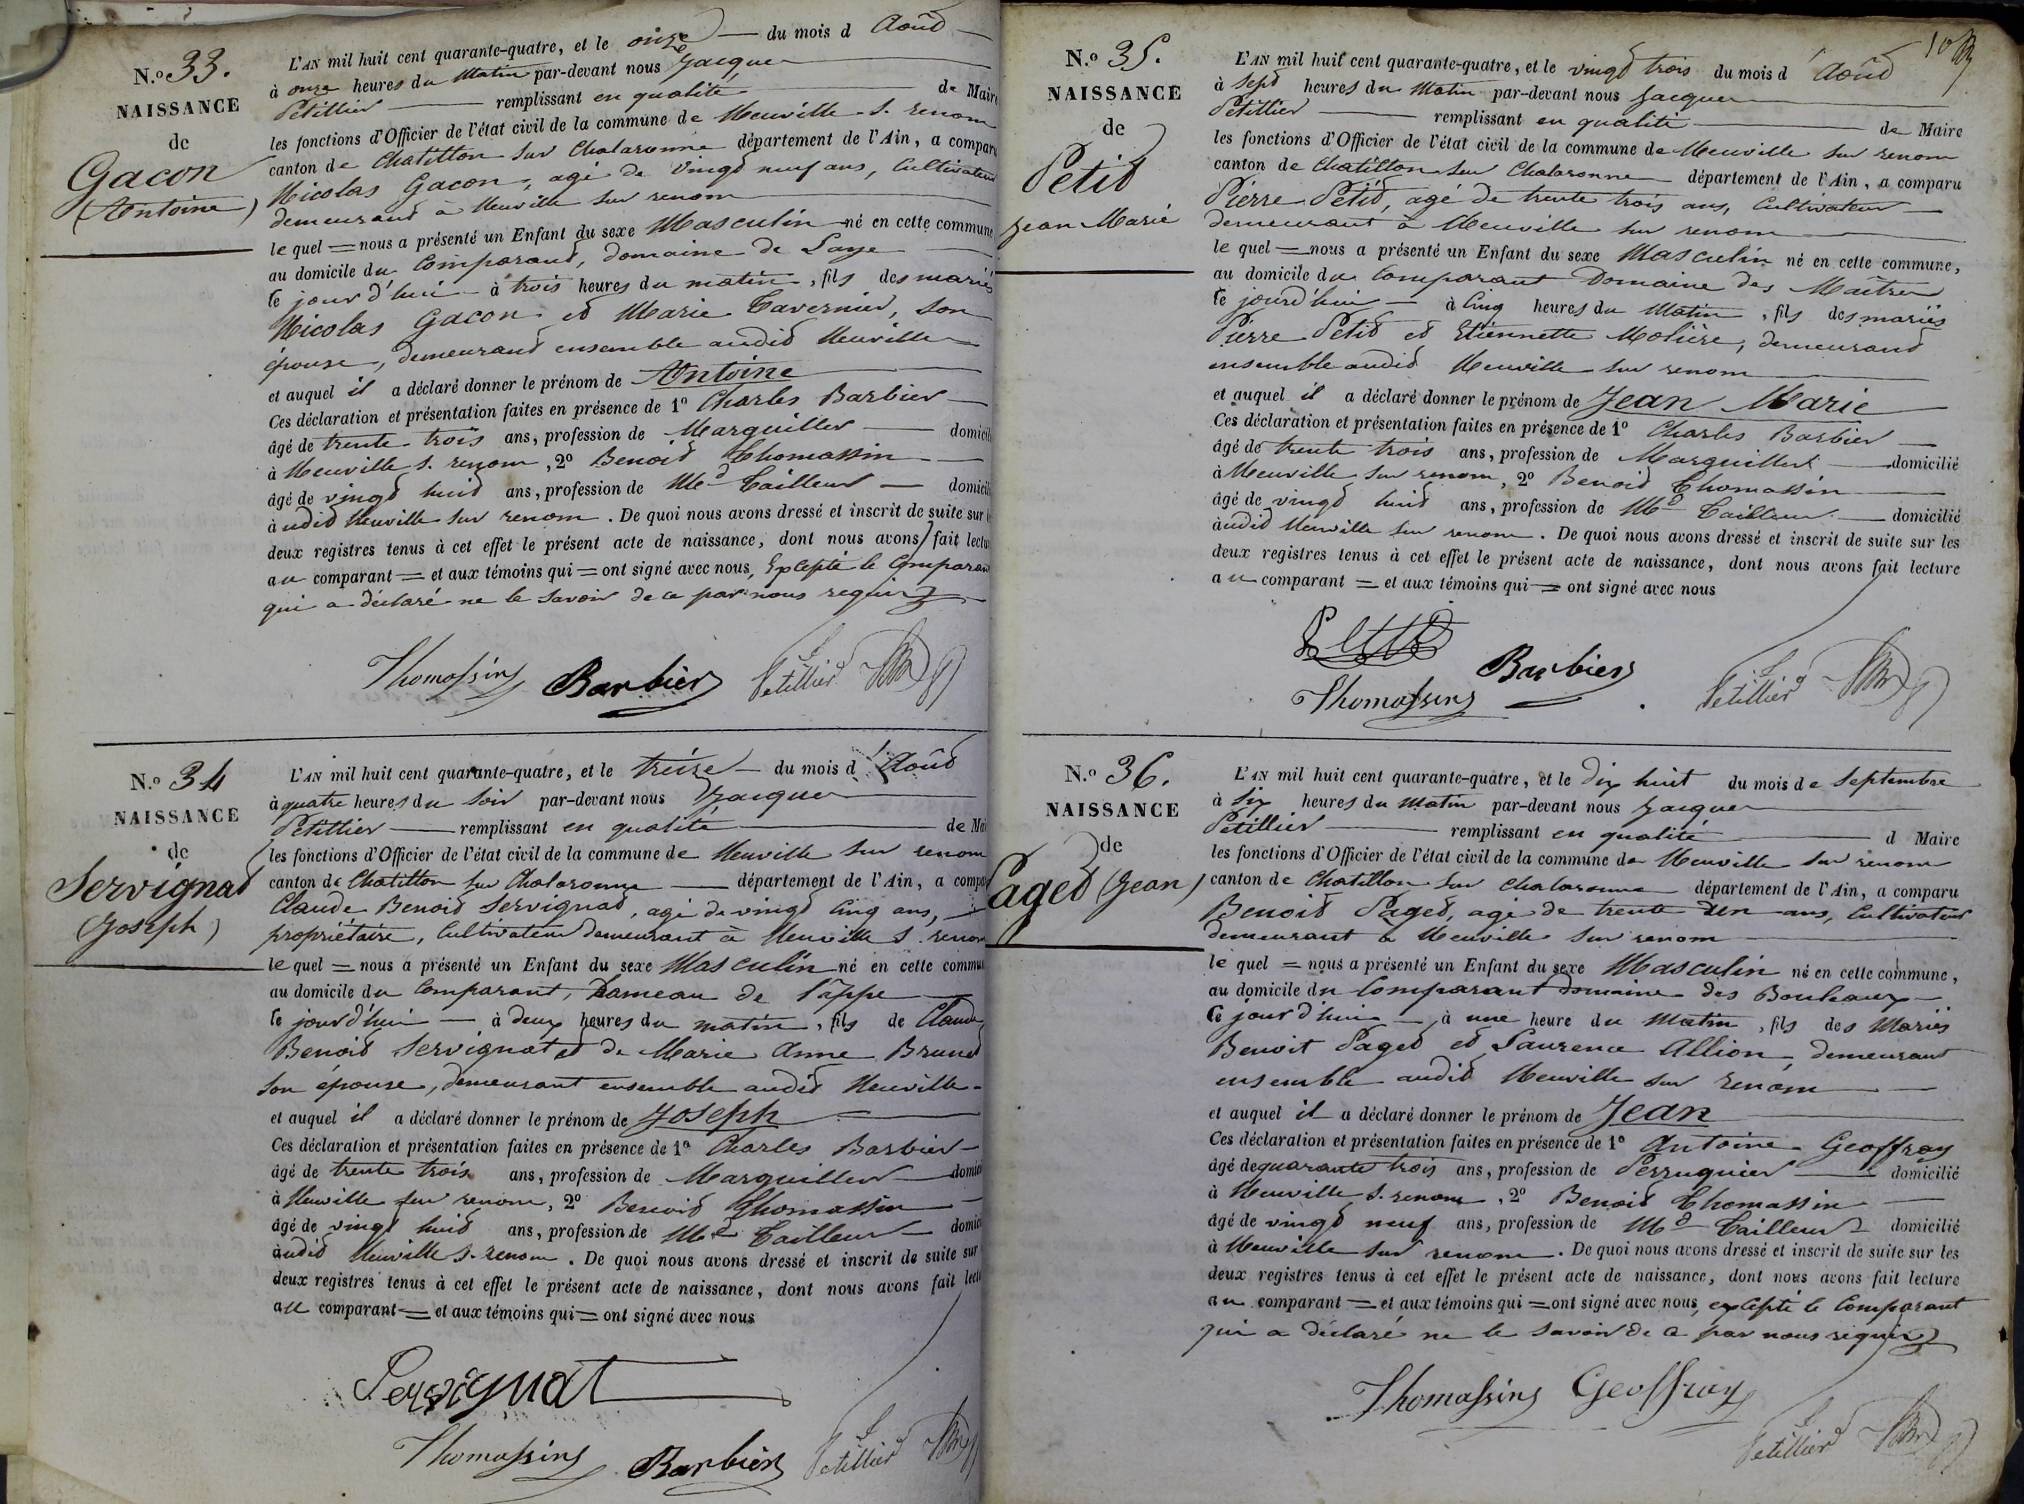 N.o 33.
NAISSANCE
de
Gacon
(Antoine)
L'AN mil huit cent quarante-quatre, et le onze — du mois d Août —
à onze heures du Matin par-devant nous Jacques
Petillier — remplissant en qualité — de Maire
les fonctions d'Officier de l'état civil de la commune de Neuville S. renom
canton de Chatillon sur Chalaronne département de l'Ain, a comparu
Nicolas Gacon, agé de vingt neuf ans, Cultivateur
demeurant à Neuville sur renom
le quel = nous a présenté un Enfant du sexe Masculin né en cette commune
au domicile du Comparant, domaine de Laye
le jourd'hui — à trois heures du matin, fils des mariés
Nicolas Gacon et Marie Tavernier, son
épouse, demeurant ensemble audit Neuville
et auquel il a déclaré donner le prénom de Antoine
Ces déclaration et présentation faites en présence de 1o Charles Barbier —
âgé de trente trois ans, profession de Marguiller — domicilié
à Neuville S. renom, 2o Benoit Thomassin —
âgé de vingt huit ans, profession de Md Tailleur — domicilié
à udit Neuville sur renom. De quoi nous avons dressé et inscrit de suite sur
deux registres tenus à cet effet le présent acte de naissance, dont nous avons fait lecture
au comparant = et aux témoins qui = ont signé avec nous, Excepté le Comparant
qui a déclaré ne le savoir de ce par nous requis
Thomassin Barbier Petillier
N.o 34
NAISSANCE
de
Servignat
(Joseph)
L'AN mil huit cent quarante-quatre, et le treize — du mois d'Août
à quatre heures du soir par-devant nous Jacques
Petillier — remplissant en qualité — de Mai
les fonctions d'Officier de l'état civil de la commune de Neuville sur renom
canton de Chatillon sur Chalaronne — département de l'Ain, a compa
Claude Benoit Servignat, agé de vingt cinq ans, —
propriétaire, Cultivateur demeurant à Neuville S. renom
le quel = nous a présenté un Enfant du sexe Masculin né en cette commu
au domicile du Comparant, hameau de Lappe
le jourd'hui — à deux heures du matin, fils de Claude
Benoit Servignat et de Marie Anne Brunet
son épouse, demeurant ensemble audit Neuville -
et auquel il a déclaré donner le prénom de Joseph
Ces déclaration et présentation faites en présence de 1o Charles Barbier —
âgé de trente trois ans, profession de Marguiller — domici
à Neuville sur renom, 2o Benoid Thomassin —
âgé de vingt huit ans, profession de Md Tailleur — domici
àudit Neuville S. renom. De quoi nous avons dressé et inscrit de suite sur
deux registres tenus à cet effet le présent acte de naissance, dont nous avons fait lectu
au comparant = et aux témoins qui = ont signé avec nous
Servignat
Thomassin Barbier Petillier
N.o 35.
NAISSANCE
de
Petit
Jean Marie
L'AN mil huit cent quarante-quatre, et le vingt trois du mois d'Août
à sept heures du Matin par-devant nous Jacques
Petillier — remplissant en qualité — de Maire
les fonctions d'Officier de l'état civil de la commune de Neuville sur renom
canton de Chatillon sur Chalaronne département de l'Ain, a comparu
Pierre Petit, agé de trente trois ans, Cultivateur —
demeurant à Neuville sur renom
le quel = nous a présenté un Enfant du sexe Masculin né en cette commune,
au domicile du Comparant Domaine des Maitres
le jourd'hui — à Cinq heures du Matin, fils des mariés
Pierre Petit et Etiennette Molière, demeurant
ensemble audit Neuville sur renom
et auquel il a déclaré donner le prénom de Jean Marie
Ces déclaration et présentation faites en présence de 1o Charles Barbier —
âgé de trente trois ans, profession de Marguiller — domicilié
à Neuville sur renom, 2o Benoid Thomassin —
âgé de vingt huit ans, profession de Md Tailleur — domicilié
àudit Neuville sur renom. De quoi nous avons dressé et inscrit de suite sur les
deux registres tenus à cet effet le présent acte de naissance, dont nous avons fait lecture
au comparant = et aux témoins qui = ont signé avec nous
Petit
Barbier
Thomassin Petillier
N.o 36.
NAISSANCE
de
Paget (Jean)
L'AN mil huit cent quarante-quatre, et le dix huit du mois de Septembre
à Six heures du Matin par-devant nous Jacques
Petillier — remplissant en qualité — d Maire
les fonctions d'Officier de l'état civil de la commune de Neuville sur renom
canton de Chatillon sur Chalaronne département de l'Ain, a comparu
Benoit Paget, agé de trente un ans, Cultivateur
demeurant à Neuville sur renom
le quel = nous a présenté un Enfant du sexe Masculin né en cette commune,
au domicile du Comparant domaine des Bouleaux —
le jourd'hui — à une heure du Matin, fils des Mariés
Benoit Paget et Laurence Allion demeurant
ensemble audit Neuville sur renom —
et auquel il a déclaré donner le prénom de Jean
Ces déclaration et présentation faites en présence de 1o Antoine Geoffray
âgé de quarante trois ans, profession de Perruquier — domicilié
à Neuville S. renom, 2o Benoit Thomassin —
âgé de vingt neuf ans, profession de Md Tailleur domicilié
à Neuville sur renom. De quoi nous avons dressé et inscrit de suite sur les
deux registres tenus à cet effet le présent acte de naissance, dont nous avons fait lecture
au comparant = et aux témoins qui = ont signé avec nous, excepté le Comparant
qui a déclaré ne le savoir de ce par nous requis
Thomassin Geoffray
Petillier